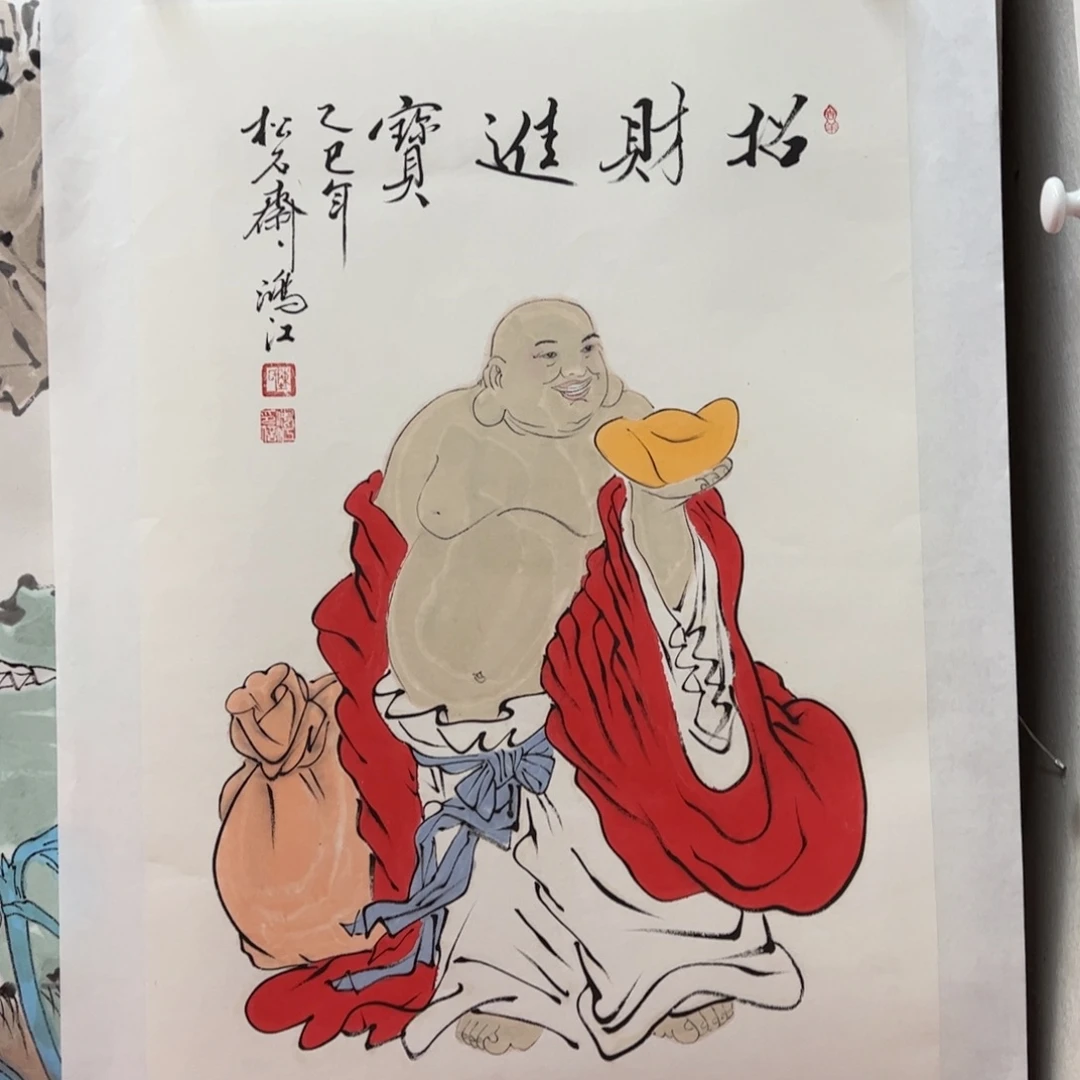 招財進寶
乙巳年
松石齋、鴻江